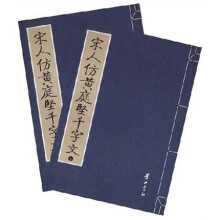 宋人仿黄庭坚千字文
宋人仿黄庭坚千字文